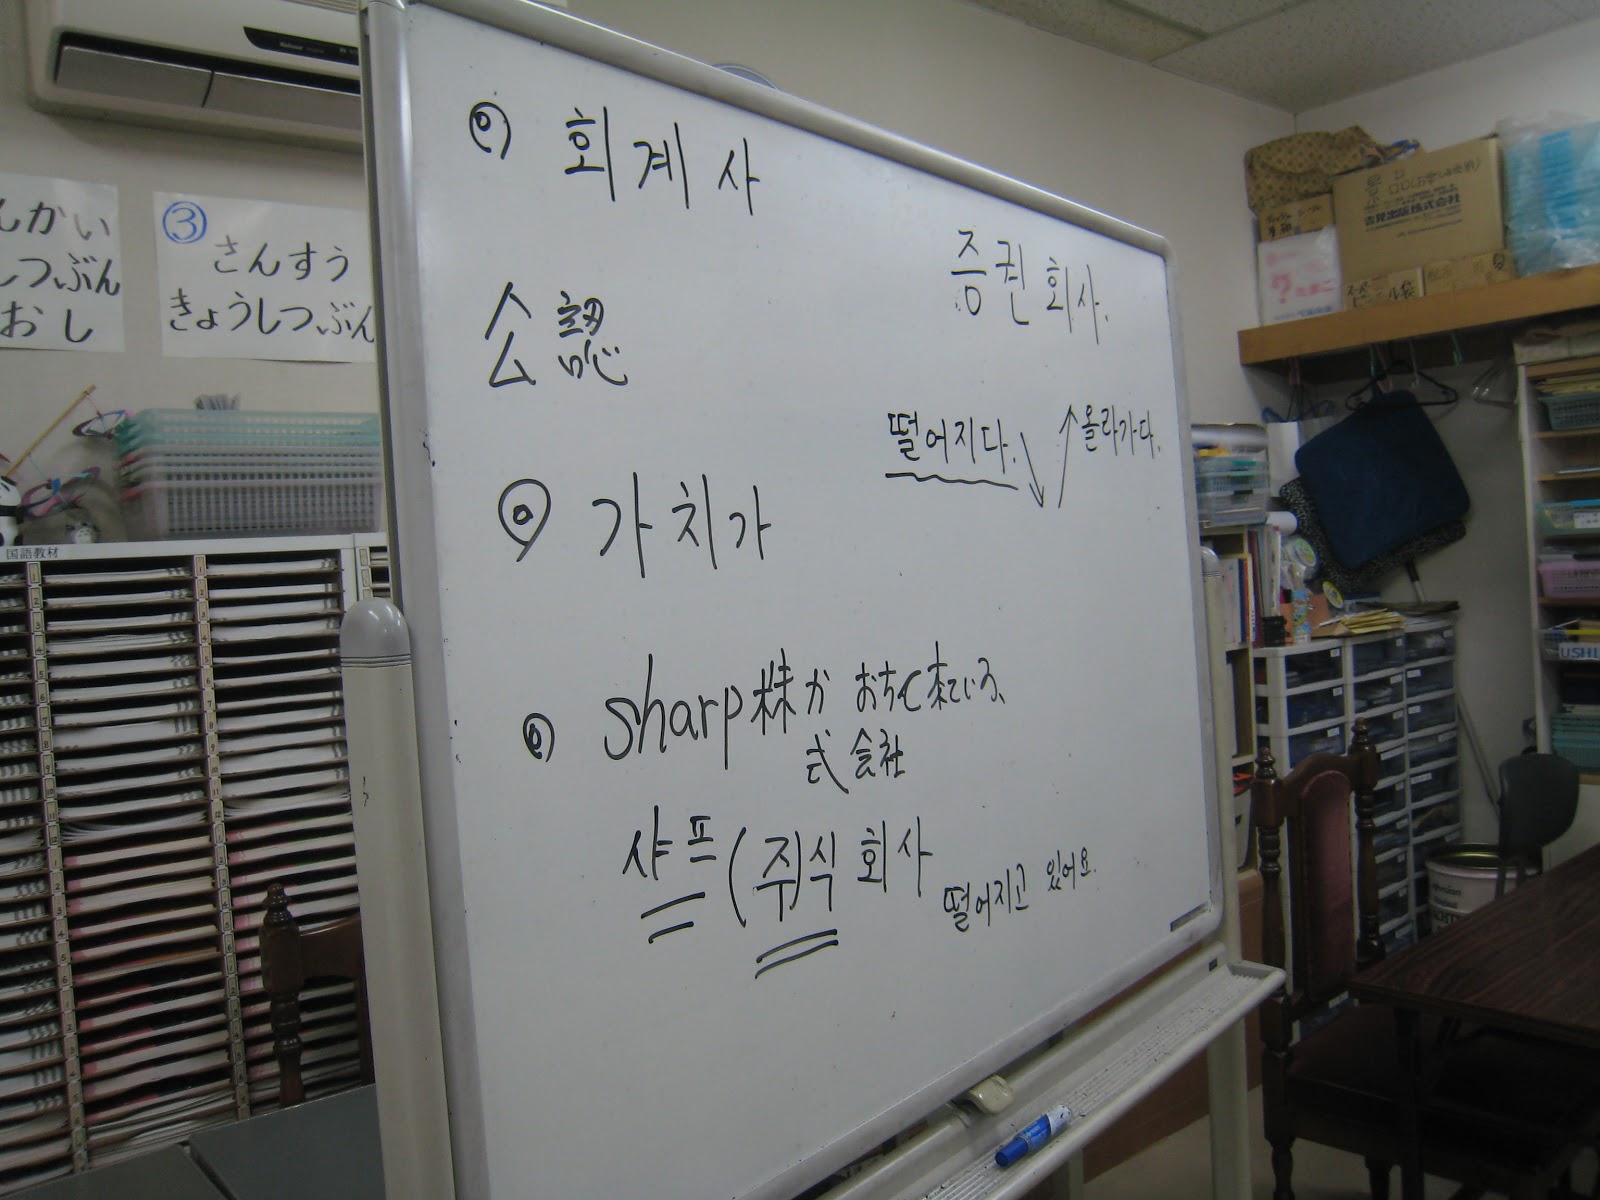 회계사
증권회사.
公認
떨어지다. 올라가다.
가치가
sharp株が おちて来ている、
式会社
샤프 (주)식회사
떨어지고 있어요.
んかい
しつぶん
おし
③
さんすう
きょうしつぶん
国語教材
吉見出版株式会社
USHI